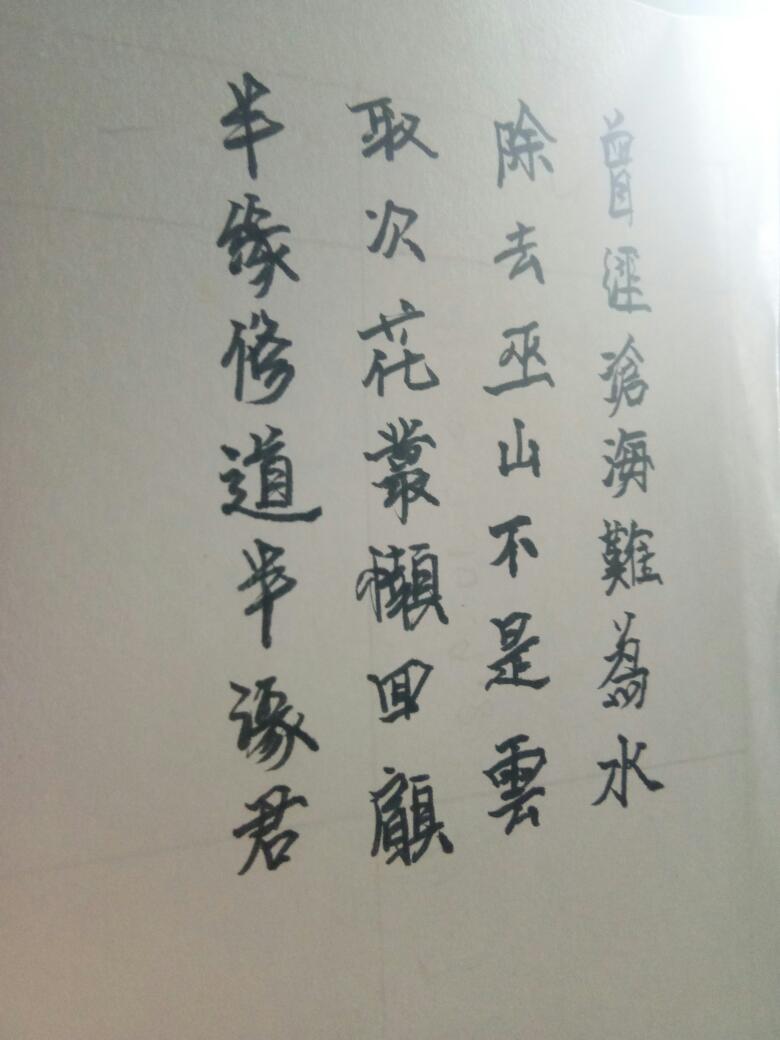 曾經滄海難為水
除去巫山不是雲
取次花叢懶回顧
半緣修道半緣君